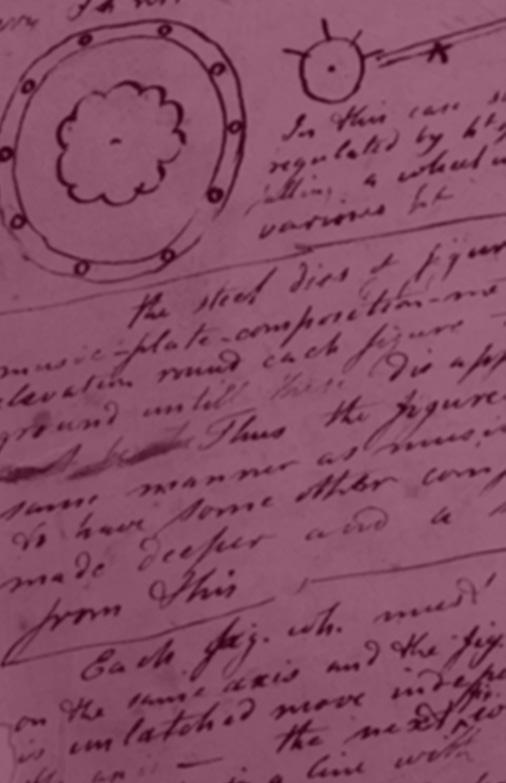 In this case
regulated by ht
a wheel
various ht
the steel dies & figur
music-plate-composition-me
elevation round each figure
ground untill these dis app
Thus the figure
same manner as music
to have some other comp
made deeper and a
from This
Each fig. wh. must
on the same axis and the fig.
is unlatched move indepe
the next
a line with